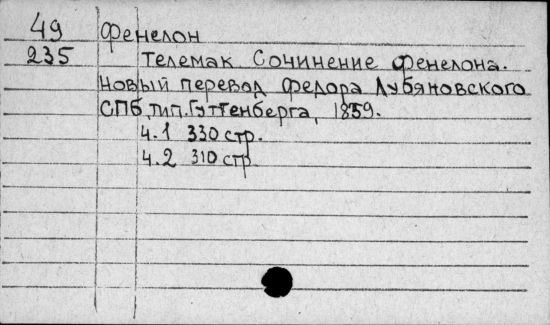 49 Фенелон
235 Телемак Сочинение Фенелона.
Новый перевод Федора Лубяновского
СПб, тип. Гуттенберга, 1839.
ч.1 330 стр.
ч.2 310 стр